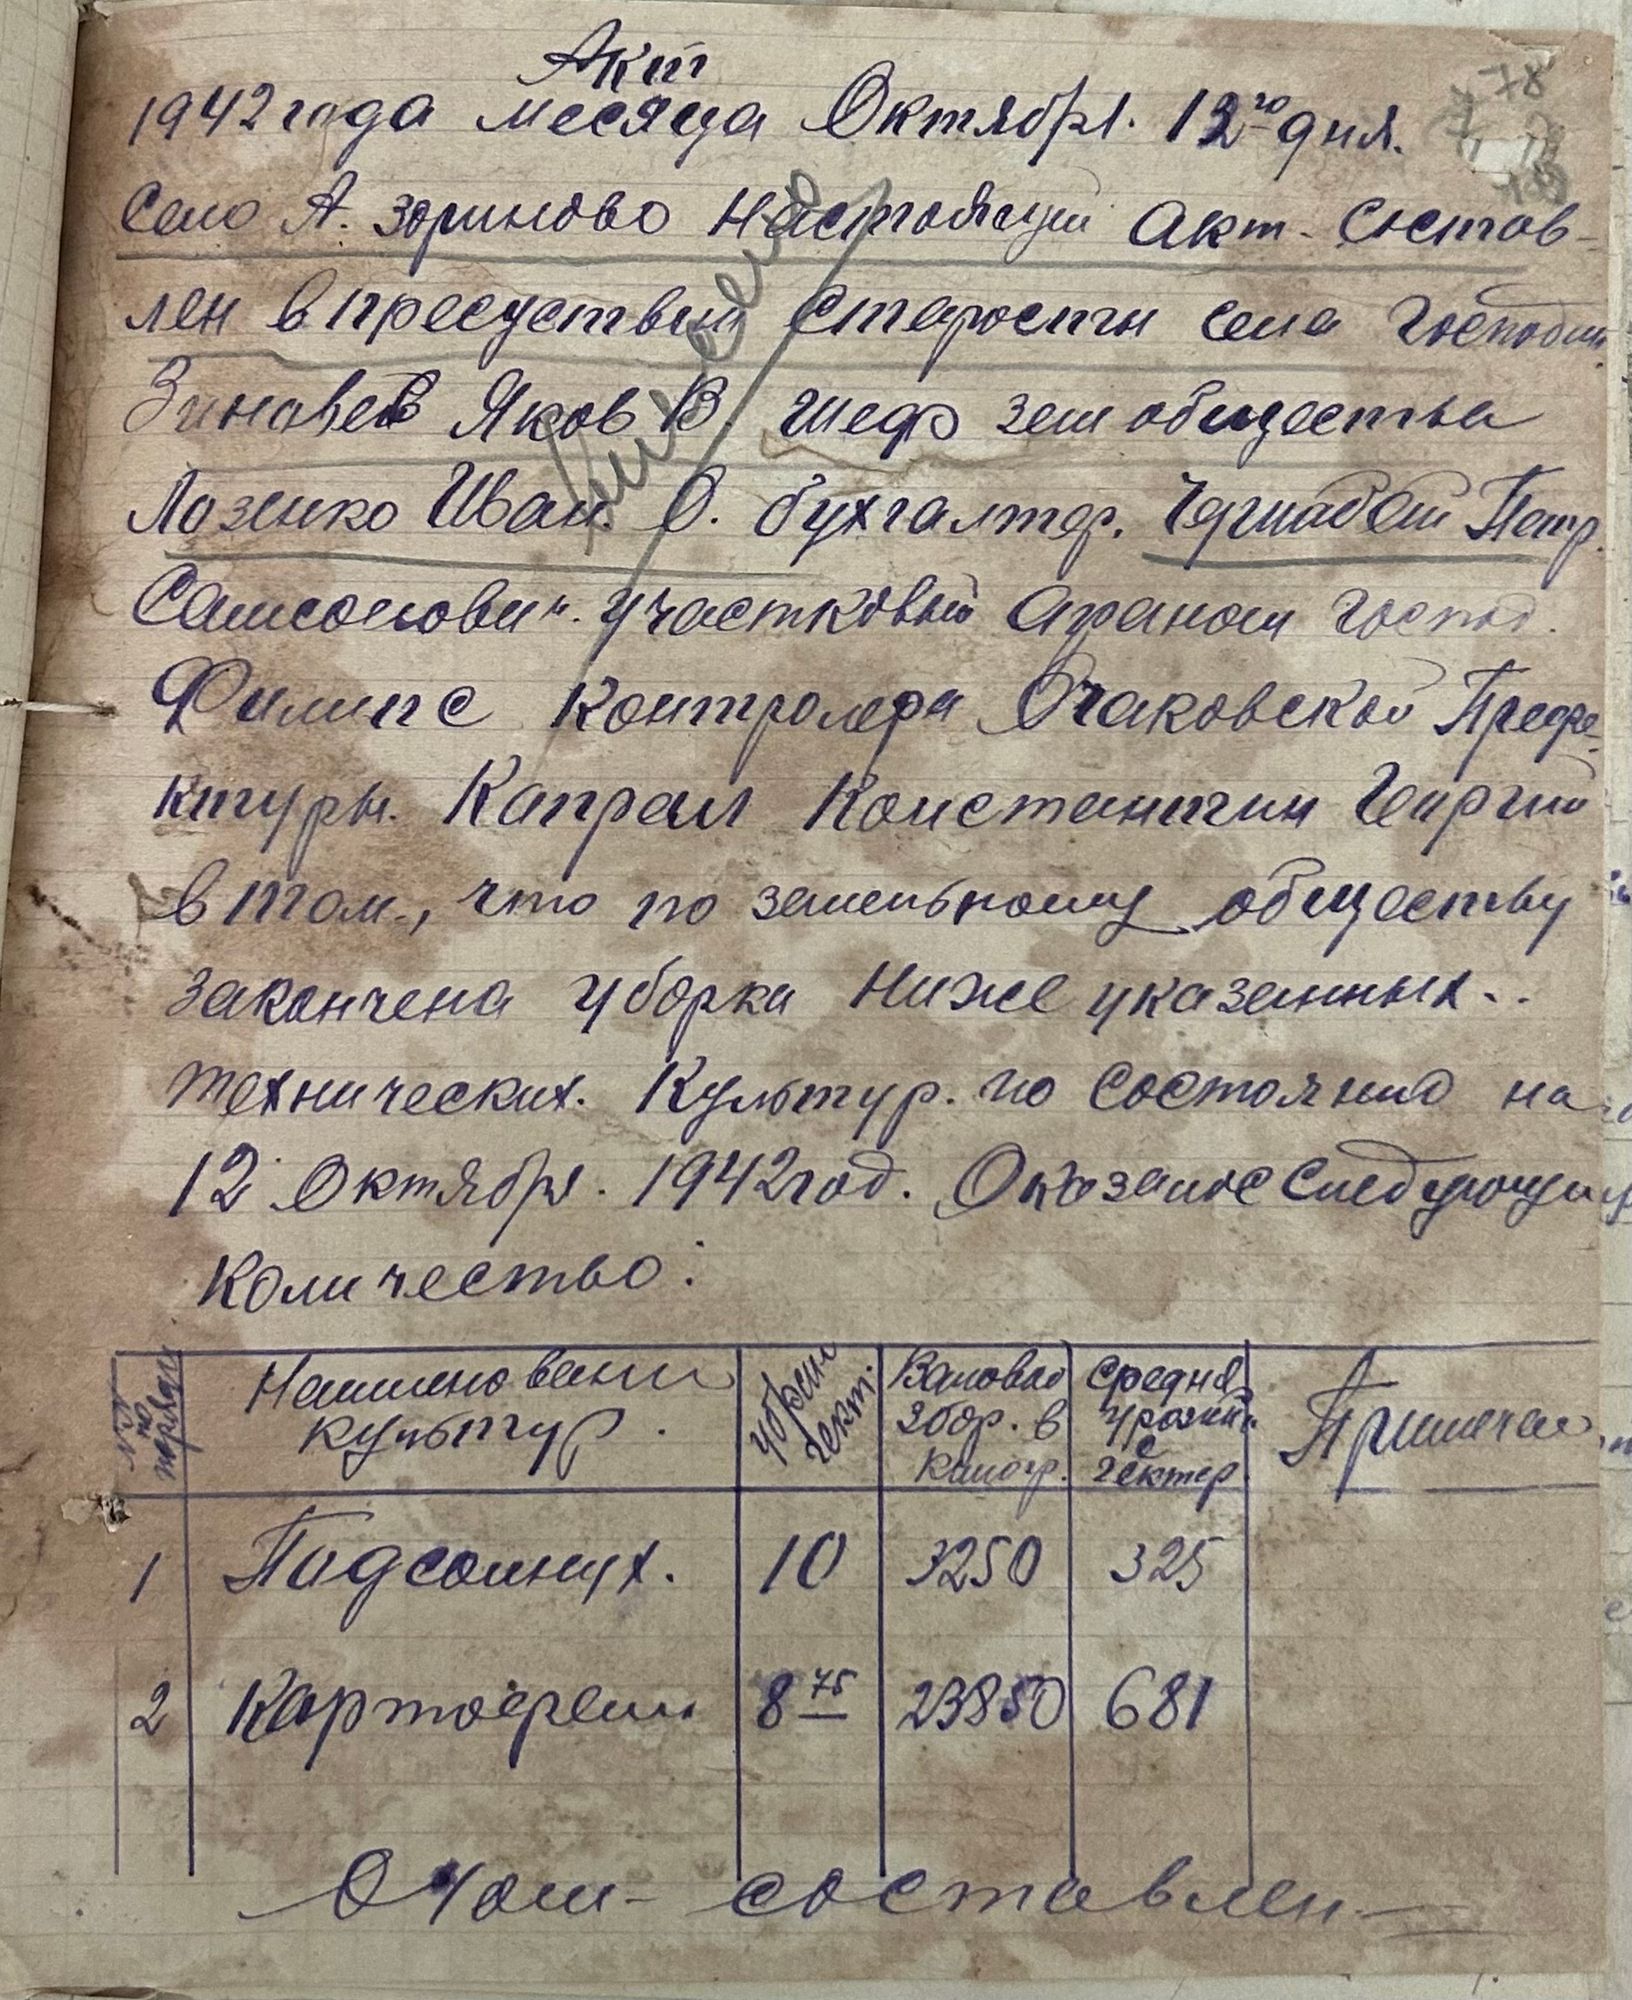 Акт
1942 года месяца Октября. 12го дня.
78
Село А. Зориново Настоящий Акт. Состав-
лен в пресудствии Старосты села Господин
Зиновев Яков В. Шеф зем общества
Лозенко Иван. О. бухгалтер. Чернабай Петр.
Самсонович. Участковый Аграном Господ.
Филипс Контролера Очаковской Префе-
ктуры. Капрал Константин Георгий
в том, что по земельному обществу
закончена уборка Ниже указанных..
технических. Культур. по состоянию на
12 Октября. 1942 год. Оказалос Следующие
количество:
№№ по порядку
Наименовани культур.
убрани гект.
Валовой збор. в килогр.
Средня урожай с гектар.
Примечан
1 Подсолнух. 10 3250 325
2 Картофели 8 75 23850 681
О чом- составлен-